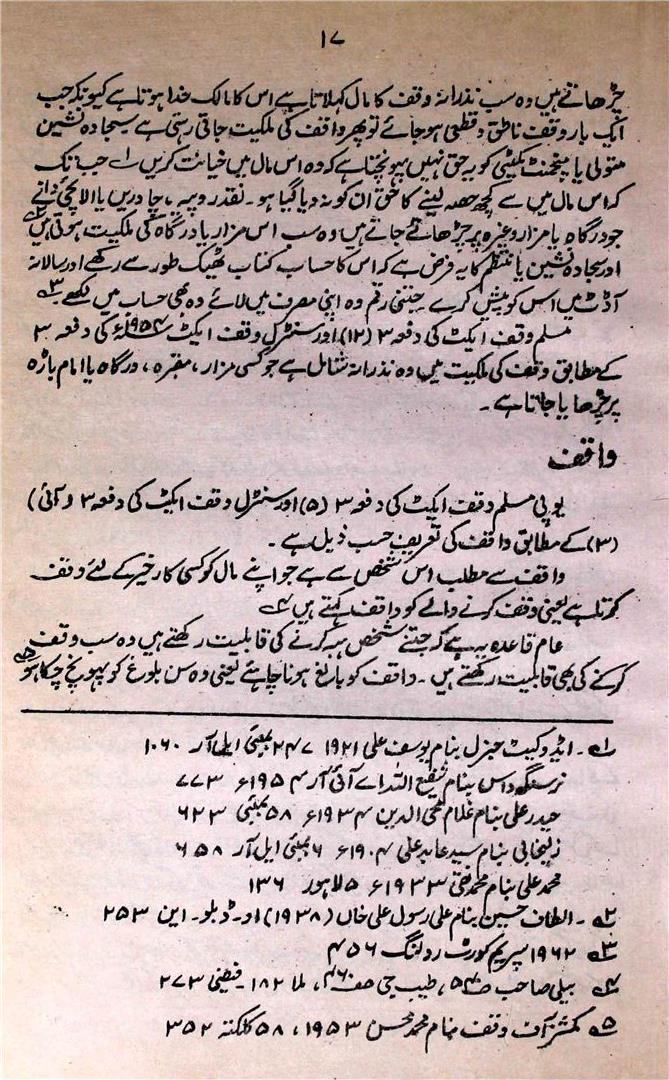 ۱۷
چڑھاتے ہیں وہ سب نذرانہ وقف کا مال کہلاتا ہے اس کا مالک خدا ہوتا ہے کیونکہ جب
ایک بار وقف ناطق و قطعی ہو جائے تو پھر واقف کی ملکیت جاتی رہتی ہے سجادہ نشین
متولی یا مینجمنٹ کمیٹی کو یہ حق نہیں پہونچتا ہے کہ وہ اس مال میں خیانت کریں ۱؎ جب تک
کہ اس مال میں سے کچھ حصہ لینے کا حق ان کو نہ دیا گیا ہو۔ نقد روپیہ، چادریں یا الائچی دانے
جو درگاہ یا مزار وغیرہ پر چڑھائے جاتے ہیں وہ سب اس مزار یا درگاہ کی ملکیت ہوتی ہیں ۲؎
اور سجادہ نشین یا منتظم کا یہ فرض ہے کہ اس کا حساب کتاب ٹھیک طور سے رکھے اور سالانہ
آڈٹ میں اس کو پیش کرے۔ جتنی رقم وہ اپنی مصرف میں لائے وہ بھی حساب میں لکھے ۳؎
مسلم وقف ایکٹ کی دفعہ ۳ (۱۲) اور سنٹرل وقف ایکٹ ۱۹۵۴ء کی دفعہ ۳
کے مطابق وقف کی ملکیت میں وہ نذرانہ شامل ہے جو کسی مزار، مقبرہ، درگاہ یا امام باڑہ
پر چڑھایا جاتا ہے۔
واقف
یوپی مسلم وقف ایکٹ کی دفعہ ۳ (۵) اور سنٹرل وقف ایکٹ کی دفعہ ۳ و آئی)
(۳) کے مطابق واقف کی تعریف حسب ذیل ہے۔
واقف سے مطلب اس شخص سے ہے جو اپنے مال کو کسی کار خیر کے لئے وقف
کرتا ہے یعنی وقف کرنے والے کو واقف کہتے ہیں ۴؎
عام قاعدہ یہ ہے کہ جتنے شخص ہبہ کرنے کی قابلیت رکھتے ہیں وہ سب وقف
کرنے کی بھی قابلیت رکھتے ہیں۔ واقف کو بالغ ہونا چاہئے یعنی وہ سن بلوغ کو پہونچ چکا ہو ۵؎
۱؎۔ ایڈوکیٹ جنرل بنام یوسف علی ۱۹۲۱ ۲۴۷ بمبئی ایل آر ۱۰۶۰
نرسنگھ داس بنام شفیع اللہ اے آئی آر ۱۹۵۴ء ۷۷۳
حیدر علی بنام غلام محی الدین ۱۹۳۴ء ۵۸ بمبئی ۶۲۳
زلیخا بی بنام سید عابد علی ۱۹۰۴ء ۶ بمبئی ایل آر ۶۵۸
محمد علی بنام محمد تقی ۱۹۳۳ء ۵ لاہور ۱۳۶
۲؎۔ الطاف حسین بنام علی رسول علی خاں (۱۹۳۸) او۔ ڈبلو۔ این ۲۵۳
۳؎ ۱۹۶۲ سپریم کورٹ رولنگ ۴۵۶
۴؎ بیلی صاحب ، طیب جی ، ملا ۱۸۲۔ فیضی ۲۷۳
۵؎ کمشنر آف وقف بنام محمد محسن ۱۹۵۳، ۵۸ کلکتہ ۳۵۲